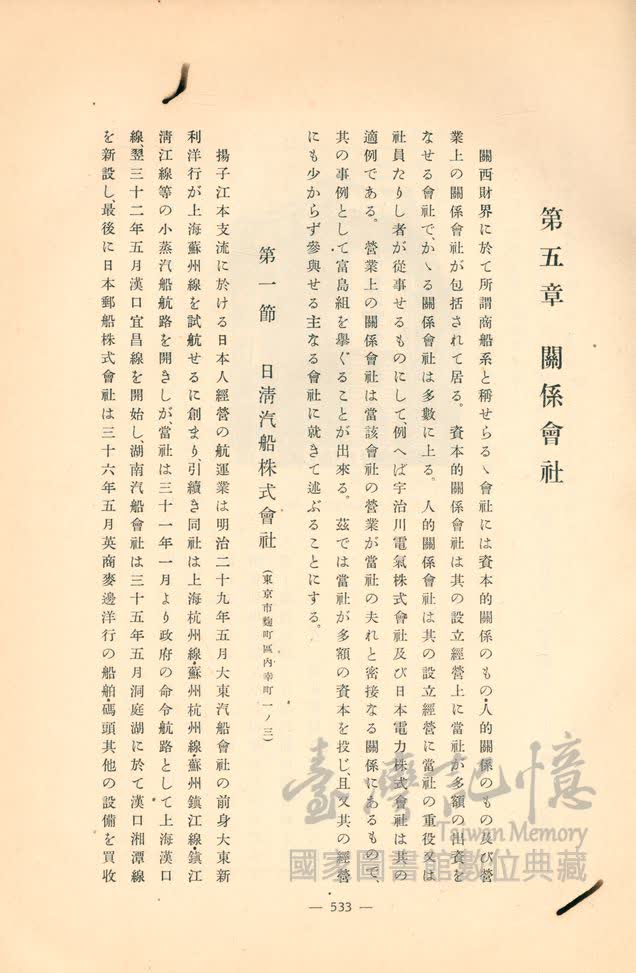 第五章 關係會社
關西財界に於て所謂商船系と稱せらるゝ會社には資本的關係のもの、人的關係のもの及び營
業上の關係會社が包括されて居る。資本的關係會社は其の設立經營上に當社が多額の出資を
なせる會社で、かゝる關係會社は多數に上る。人的關係會社は其の設立經營に當社の重役又は
社員たりし者が從事せるものにして、例へば宇治川電氣株式會社及び日本電力株式會社は其の
適例である。營業上の關係會社は當該會社の營業が當社の夫れと密接なる關係にあるもので、
其の事例として富島組を擧ぐることが出來る。茲では當社が多額の資本を投じ、且又其の經營
にも少からず參與せる主なる會社に就きて述ぶることにする。
第一節 日淸汽船株式會社 (東京市麴町區內幸町一ノ三)
揚子江本支流に於ける日本人經營の航運業は明治二十九年五月大東汽船會社の前身大東新
利洋行が上海蘇州線を試航せるに創まり、引續き同社は上海杭州線、蘇州杭州線、蘇州鎭江線、鎭江
淸江線等の小蒸汽船航路を開きしが、當社は三十一年一月より政府の命令航路として上海漢口
線、翌三十二年五月漢口宜昌線を開始し、湖南汽船會社は三十五年五月洞庭湖に於て漢口湘潭線
を新設し、最後に日本郵船株式會社は三十六年五月英商麥邊洋行の船舶、碼頭其他の設備を買收
— 533 —
臺灣記憶
Taiwan Memory
國家圖書館數位典藏